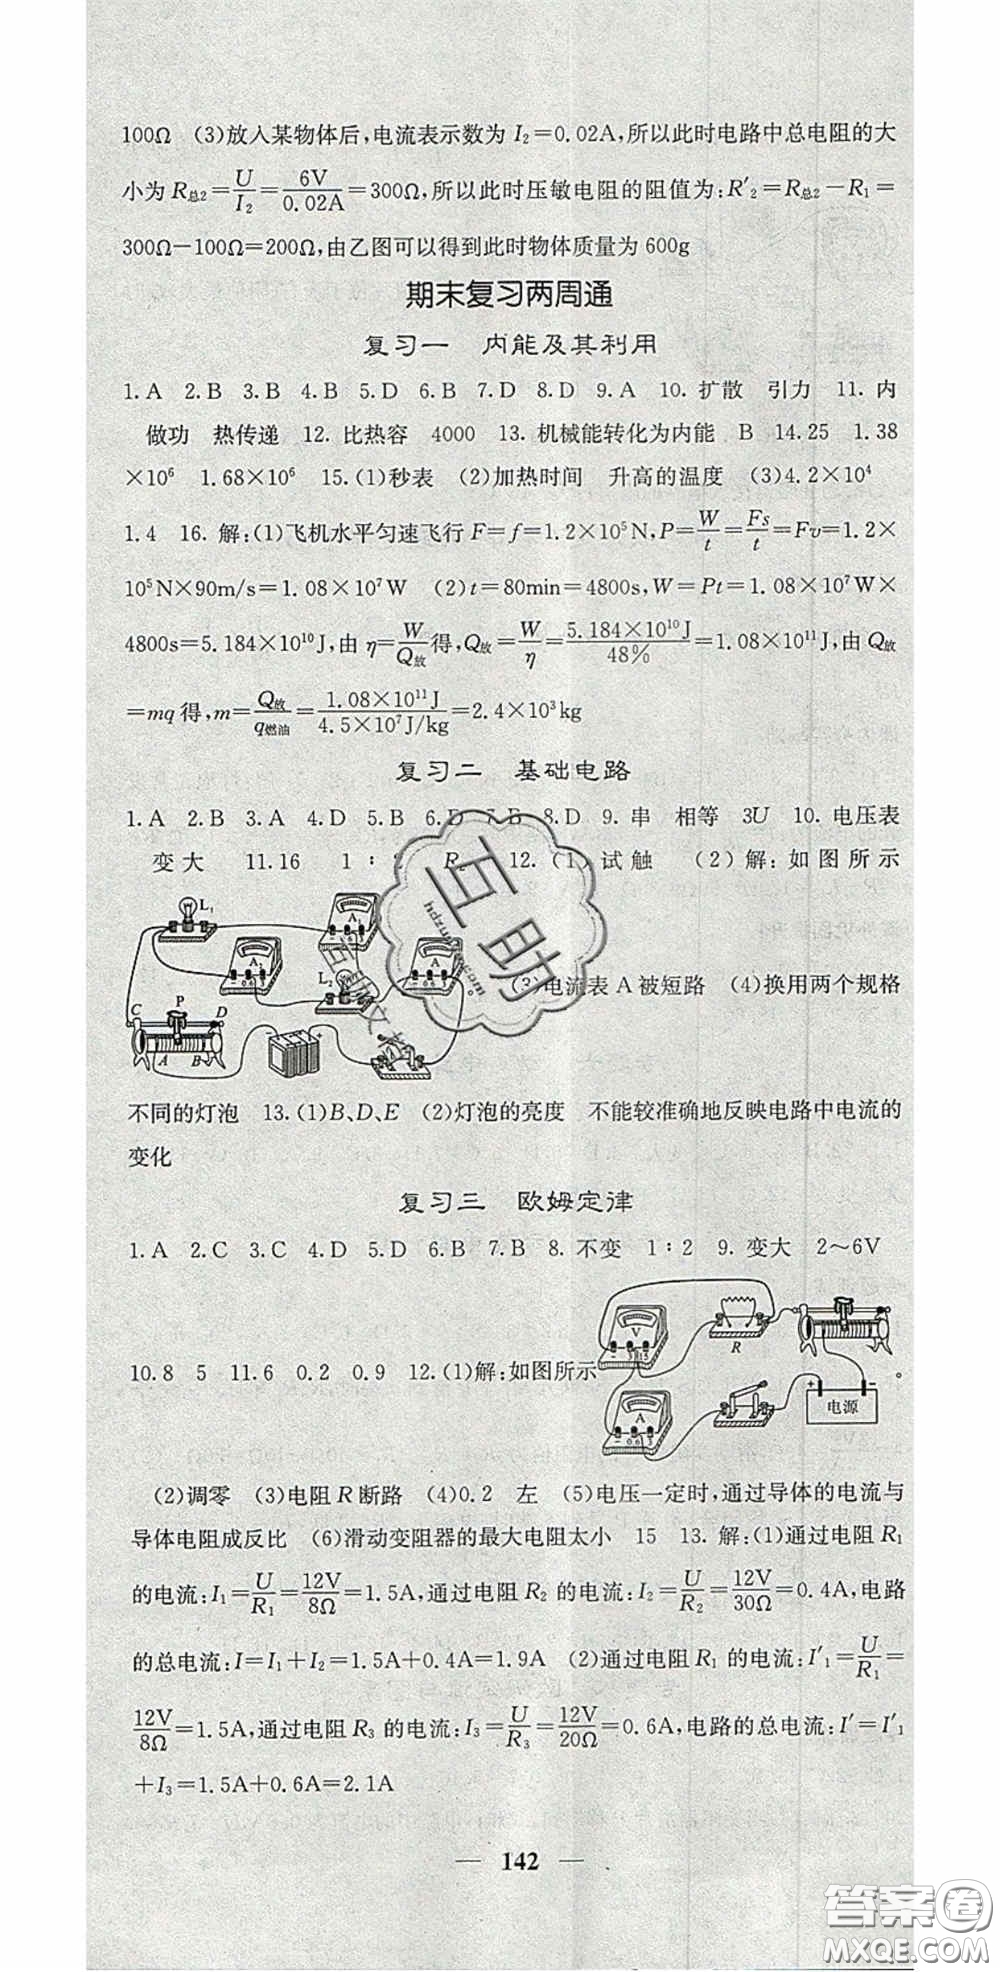 100Ω (3)放入某物体后,电流表示数为 I₂=0.02A,所以此时电路中总电阻的大
小为 R总2=U/I₂=6V/0.02A=300Ω,所以此时压敏电阻的阻值为:R′₂=R总2−R₁=
300Ω−100Ω=200Ω,由乙图可以得到此时物体质量为 600g
期末复习两周通
复习一 内能及其利用
1.A 2.B 3.B 4.B 5.D 6.B 7.D 8.D 9.A 10.扩散 引力 11.内
做功 热传递 12.比热容 4000 13.机械能转化为内能 B 14.25 1.38
×10⁶ 1.68×10⁶ 15.(1)秒表 (2)加热时间 升高的温度 (3)4.2×10⁴
1.4 16.解:(1)飞机水平匀速飞行 F=f=1.2×10⁵N,P=W/t=Fs/t=Fv=1.2×
10⁵N×90m/s=1.08×10⁷W (2)t=80min=4800s,W=Pt=1.08×10⁷W×
4800s=5.184×10¹⁰J,由 η=W/Q放得,Q放=W/η=5.184×10¹⁰J/48%=1.08×10¹¹J,由 Q放
=mq 得,m=Q放/q燃油=1.08×10¹¹J/4.5×10⁷J/kg=2.4×10³kg
复习二 基础电路
1.A 2.B 3.A 4.D 5.B 6.D 7.B 8.D 9.串 相等 3U 10.电压表
变大 11.16 1∶2 12.(1)试触 (2)解:如图所示
L₁ A₁
A₂ L₂ A
−0.6 3
C P D
A B − +
(3)电流表 A 被短路 (4)换用两个规格
不同的灯泡 13.(1)B、D、E (2)灯泡的亮度 不能较准确地反映电路中电流的
变化
复习三 欧姆定律
1.A 2.C 3.C 4.D 5.D 6.B 7.B 8.不变 1∶2 9.变大 2~6V
10.8 5 11.6 0.2 0.9 12.(1)解:如图所示 。
V R
A
−0.6 3
+ −
电源
(2)调零 (3)电阻 R 断路 (4)0.2 左 (5)电压一定时,通过导体的电流与
导体电阻成反比 (6)滑动变阻器的最大电阻太小 15 13.解:(1)通过电阻 R₁
的电流:I₁=U/R₁=12V/8Ω=1.5A,通过电阻 R₂ 的电流:I₂=U/R₂=12V/30Ω=0.4A,电路
的总电流:I=I₁+I₂=1.5A+0.4A=1.9A (2)通过电阻 R₁ 的电流:I′₁=U/R₁=
12V/8Ω=1.5A,通过电阻 R₃ 的电流:I₃=U/R₃=12V/20Ω=0.6A,电路的总电流:I′=I′₁
+I₃=1.5A+0.6A=2.1A
— 142 —
互助
答案圈
MXQE.COM